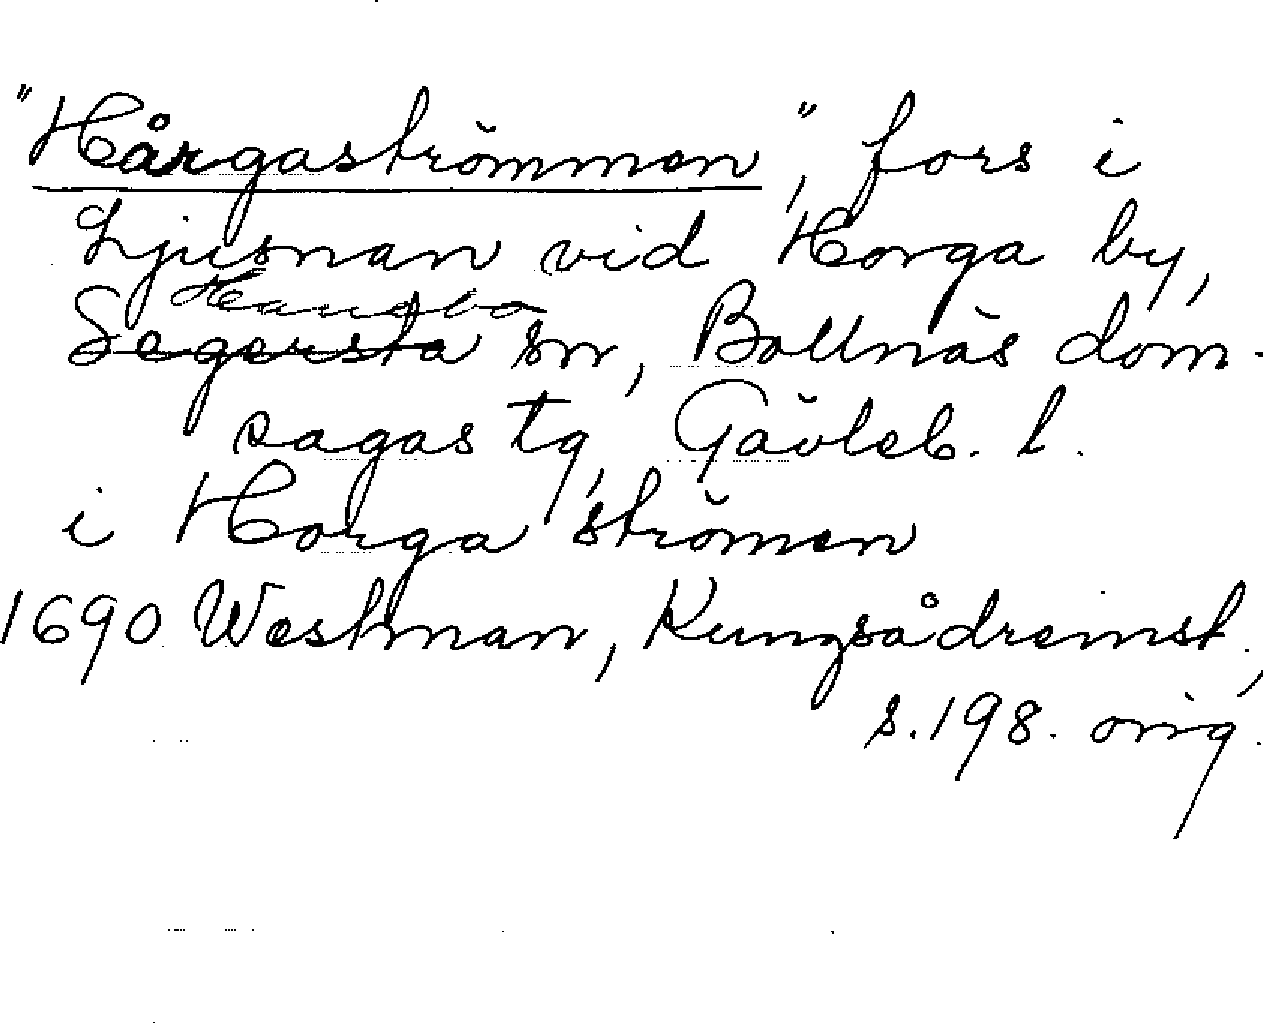 "Hårgaströmmen", fors i
Ljusnan vid Horga by,
Hanebo
Segersta sn, Bollnäs dom-
sagas tg, Gävleb. l.
i Horga strömen
1690 Westman, Kungsådreinst.,
s. 198. orig.